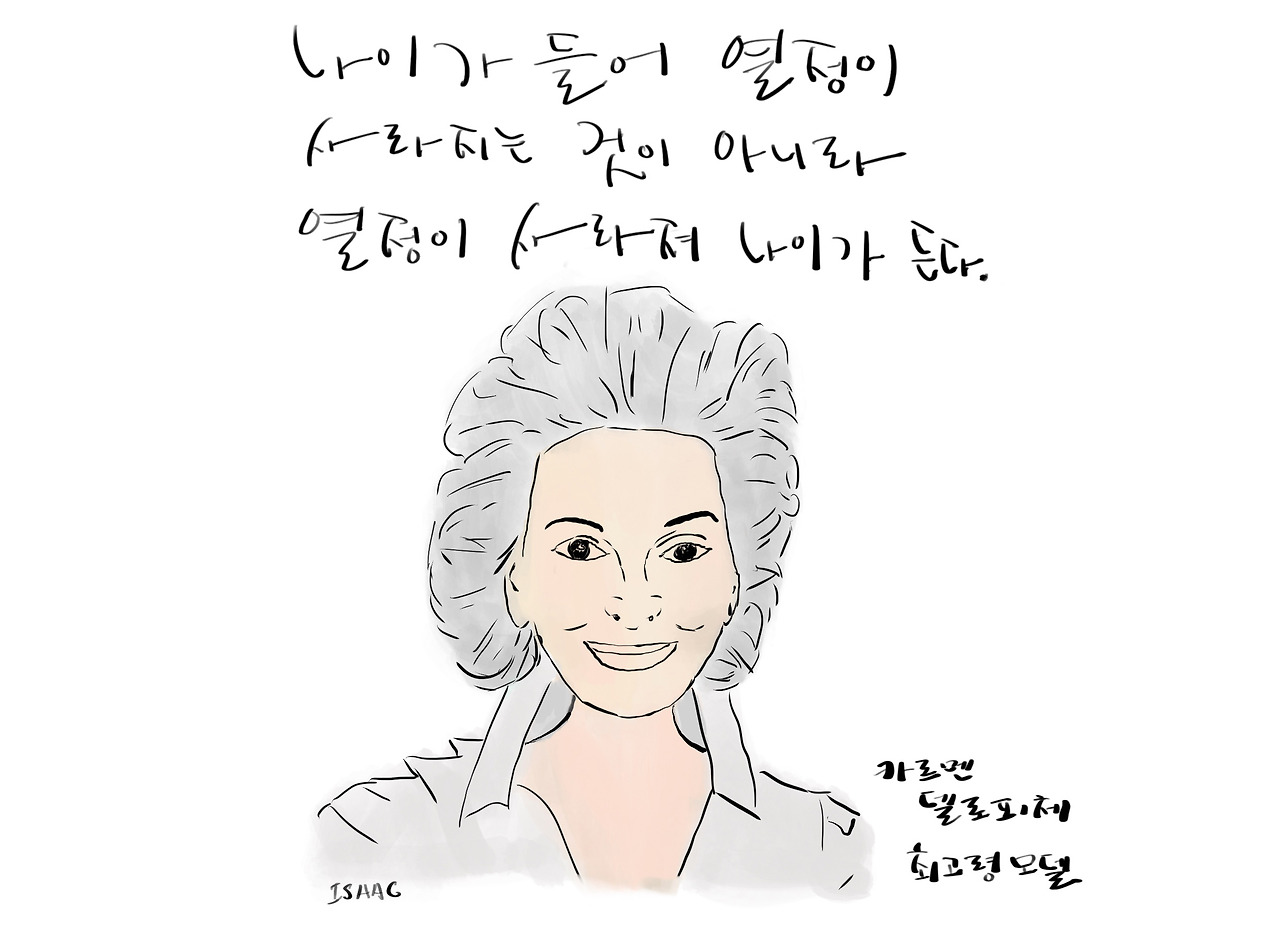 나이가 들어 열정이
사라지는 것이 아니라
열정이 사라져 나이가 든다.
카르멘
델로피체
최고령 모델
ISAAC